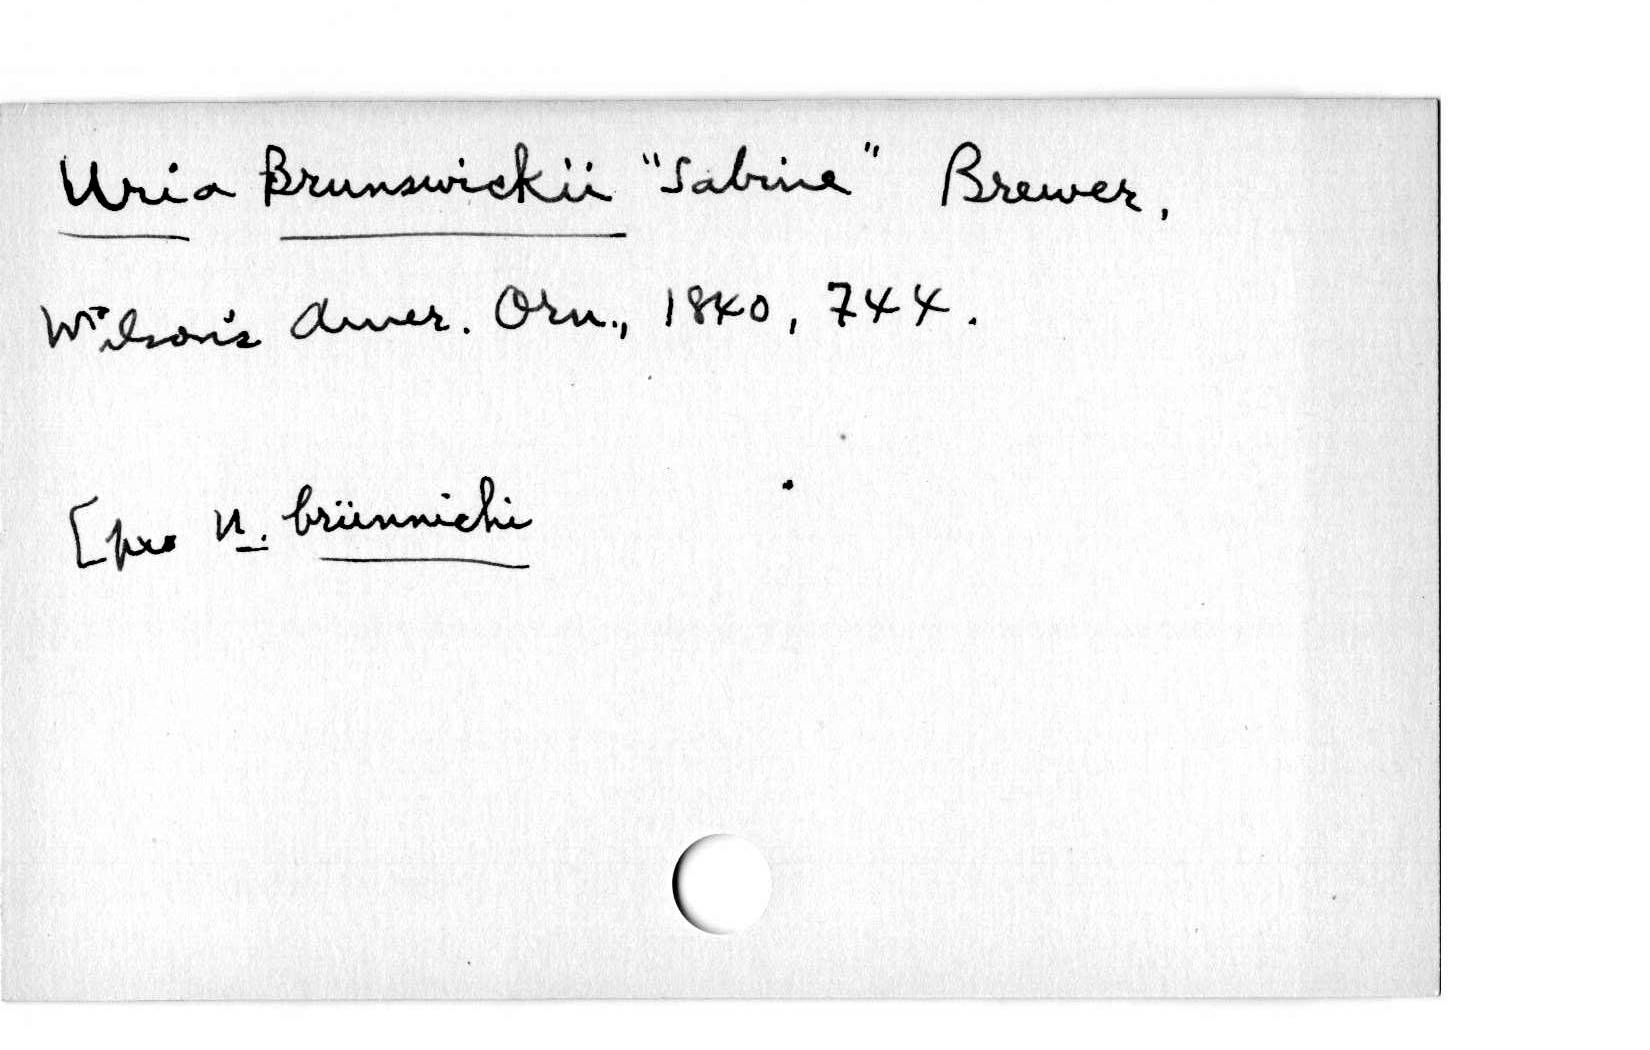 Uria Brunswickii "Sabine" Brewer,
Wilson's Amer. Orn., 1840, 744.
[pro U. brünnichi